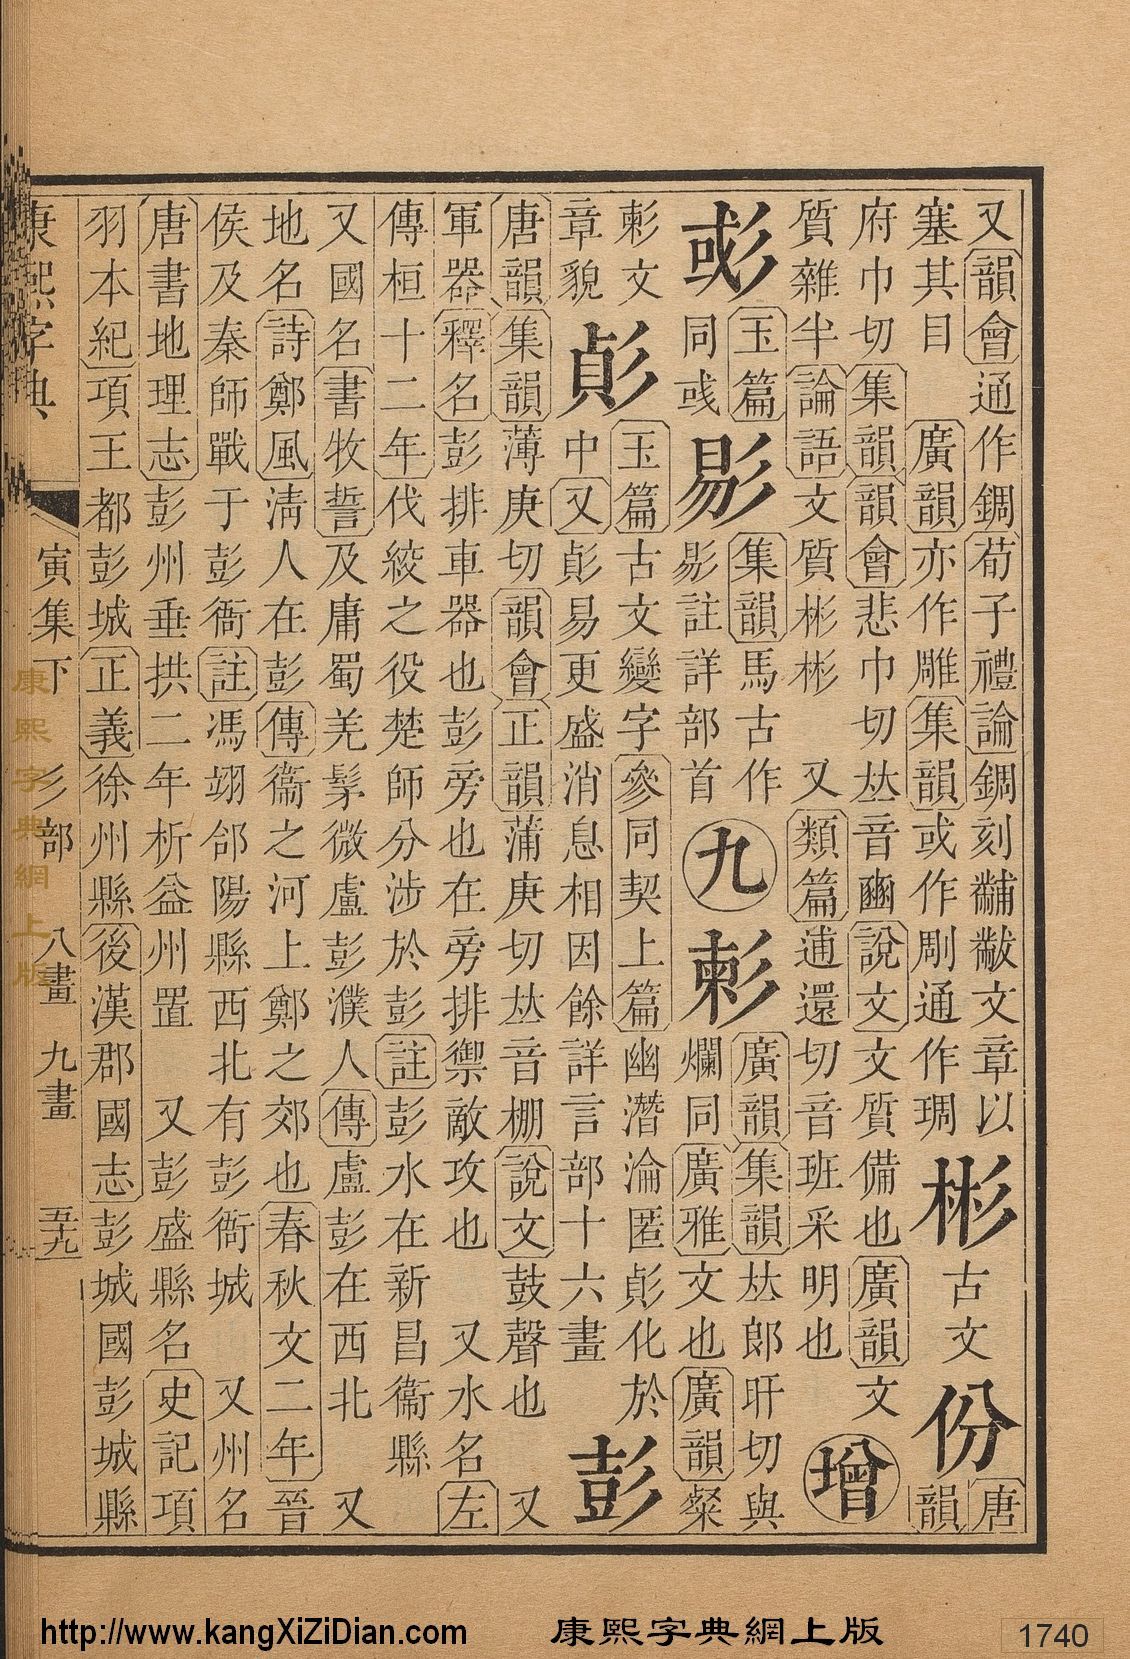 又韻會通作錭荀子禮論錭刻黼黻文章以
塞其目 廣韻亦作雕集韻或作剛通作琱
彬古文份唐韻
府巾切集韻韻會悲巾切𠀤音豳說文文質備也廣韻文
質雜半論語文質彬彬 又類篇逋還切音班采明也
增
彧玉篇同彧
㣉集韻馬古作㣉註詳部首
九
㣐廣韻集韻𠀤郎旰切與爛同廣雅文也廣韻粲
㣐文
章貌
𢒰玉篇古文變字參同契上篇幽潛淪匿𢒰化於
中又𢒰易更盛消息相因餘詳言部十六畫
彭
唐韻集韻薄庚切韻會正韻蒲庚切𠀤音棚說文鼓聲也 又
軍器釋名彭排車器也彭旁也在旁排禦敵攻也 又水名左
傳桓十二年伐絞之役楚師分涉於彭註彭水在新昌衞縣
又國名書牧誓及庸蜀羌髳微盧彭濮人傳盧彭在西北 又
地名詩鄭風淸人在彭傳衞之河上鄭之郊也春秋文二年晉
侯及秦師戰于彭衙註馮翊郃陽縣西北有彭衙城 又州名
唐書地理志彭州垂拱二年析益州置 又彭盛縣名史記項
羽本紀項王都彭城正義徐州縣後漢郡國志彭城國彭城縣
康熙字典 寅集下 彡部 八畫 九畫 五十九
康熙字典網上版
http://www.kangXiZiDian.com 康熙字典網上版 1740